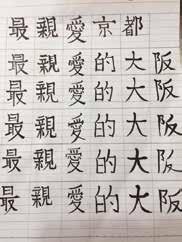 最親愛京都
最親愛的大阪
最親愛的大阪
最親愛的大阪
最親愛的大阪
最親愛的大阪